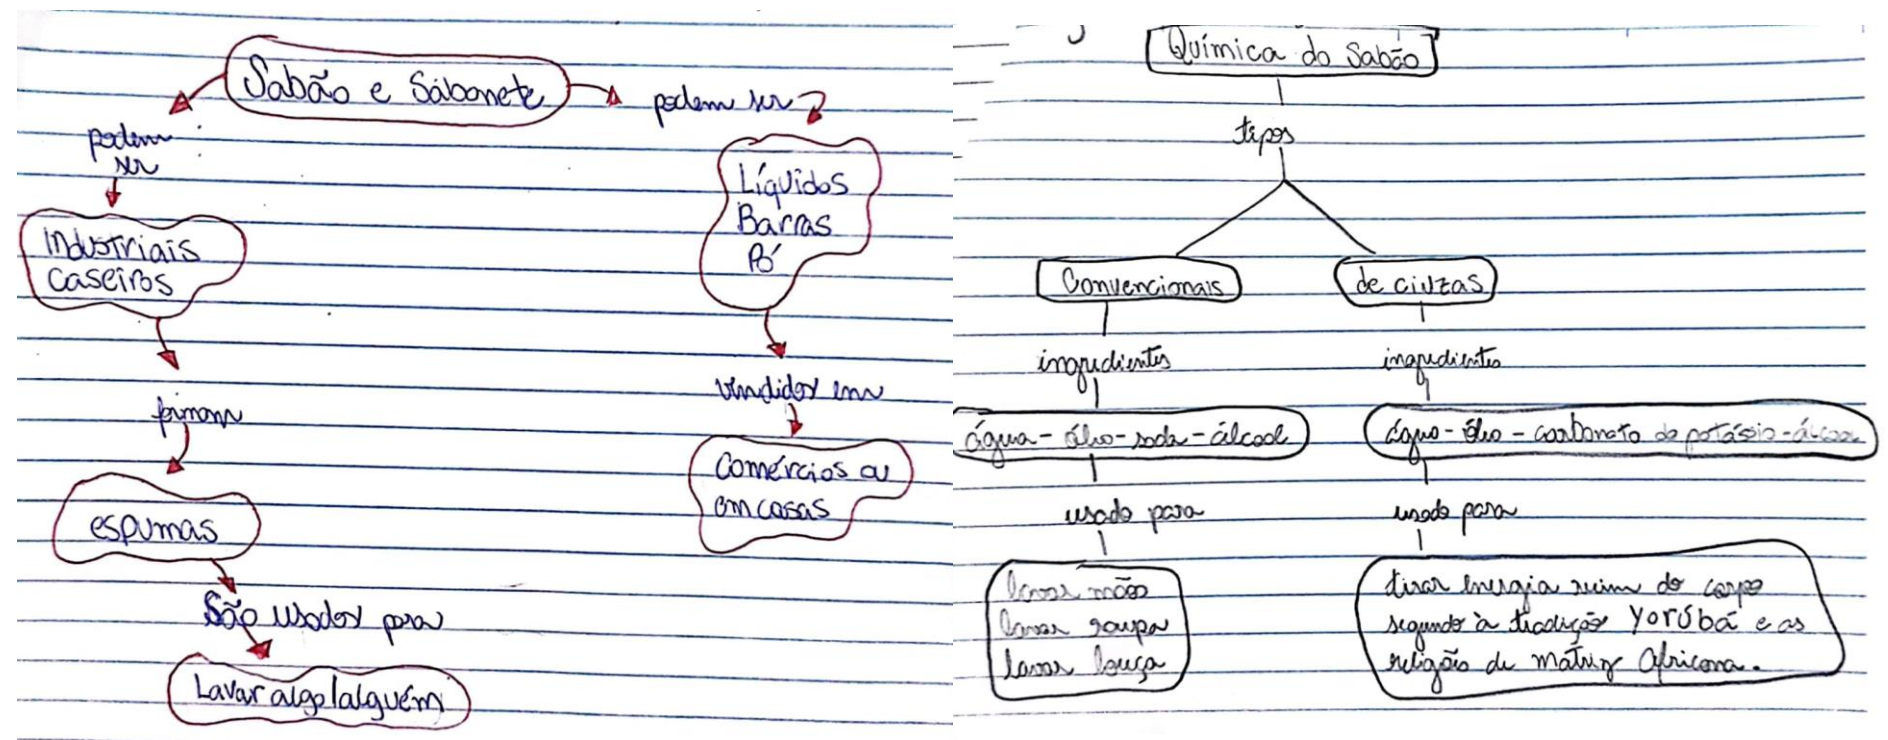 Sabão e Sabonete
podem
ser
Industriais
caseiros
formam
espumas
São usados para
Lavar algo/alguém
podem ser
Líquidos
Barras
Pó
vendidos em
Comércios ou
em casas
Química do Sabão
tipos
Convencionais
ingredientes
água - óleo - soda - álcool
usado para
lavar mãos
lavar roupa
lavar louça
de cinzas
ingredientes
água - óleo - carbonato de potássio - álcool
usado para
tirar energia ruim do corpo
segundo à tradição Yorúbá e as
religião de matriz Africana.